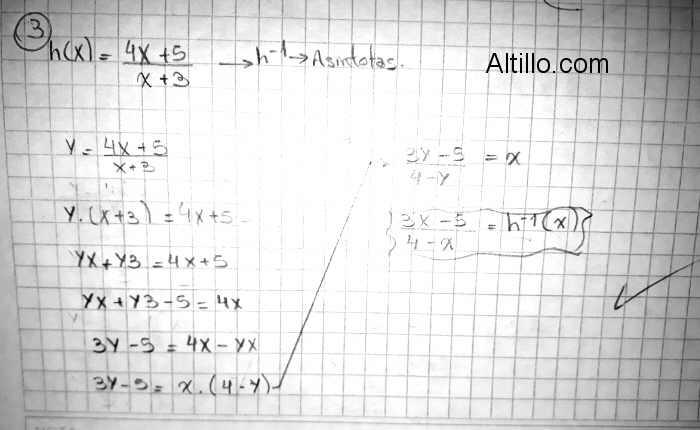 3
h(x) = 4x+5 / x+3 → h⁻¹ → Asíntotas.
Altillo.com
y = 4x+5 / x+3
y.(x+3) = 4x+5
yx+y3 = 4x+5
yx+y3-5 = 4x
3y-5 = 4x-yx
3y-5 = x.(4-y)
3y-5 / 4-y = x
3x-5 / 4-x = h⁻¹(x)